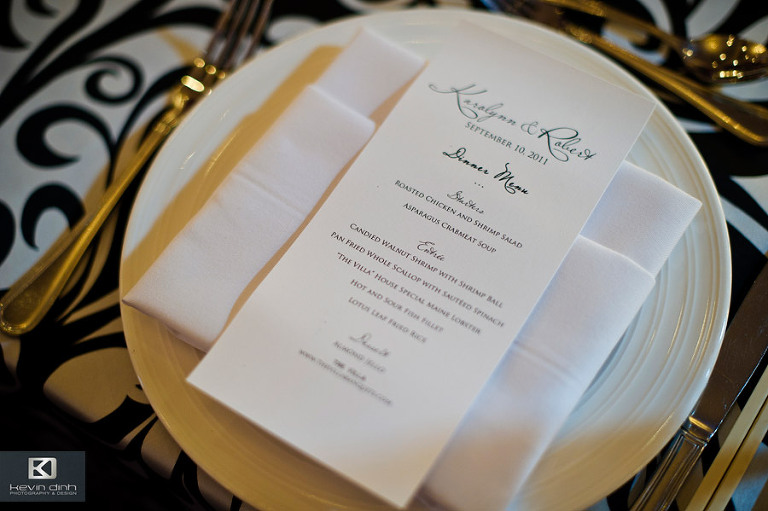 Karolynn & Robert
September 10, 2011
Dinner Menu
...
Starters
Roasted Chicken and Shrimp Salad
Asparagus Crabmeat Soup
Entrée
Candied Walnut Shrimp with Shrimp Ball
Pan Fried Whole Scallop with Sautéed Spinach
"The Villa" House Special Maine Lobster
Hot and Sour Fish Fillet
Lotus Leaf Fried Rice
Dessert
Almond Jello
The Villa
KD
kevin dinh
PHOTOGRAPHY & DESIGN